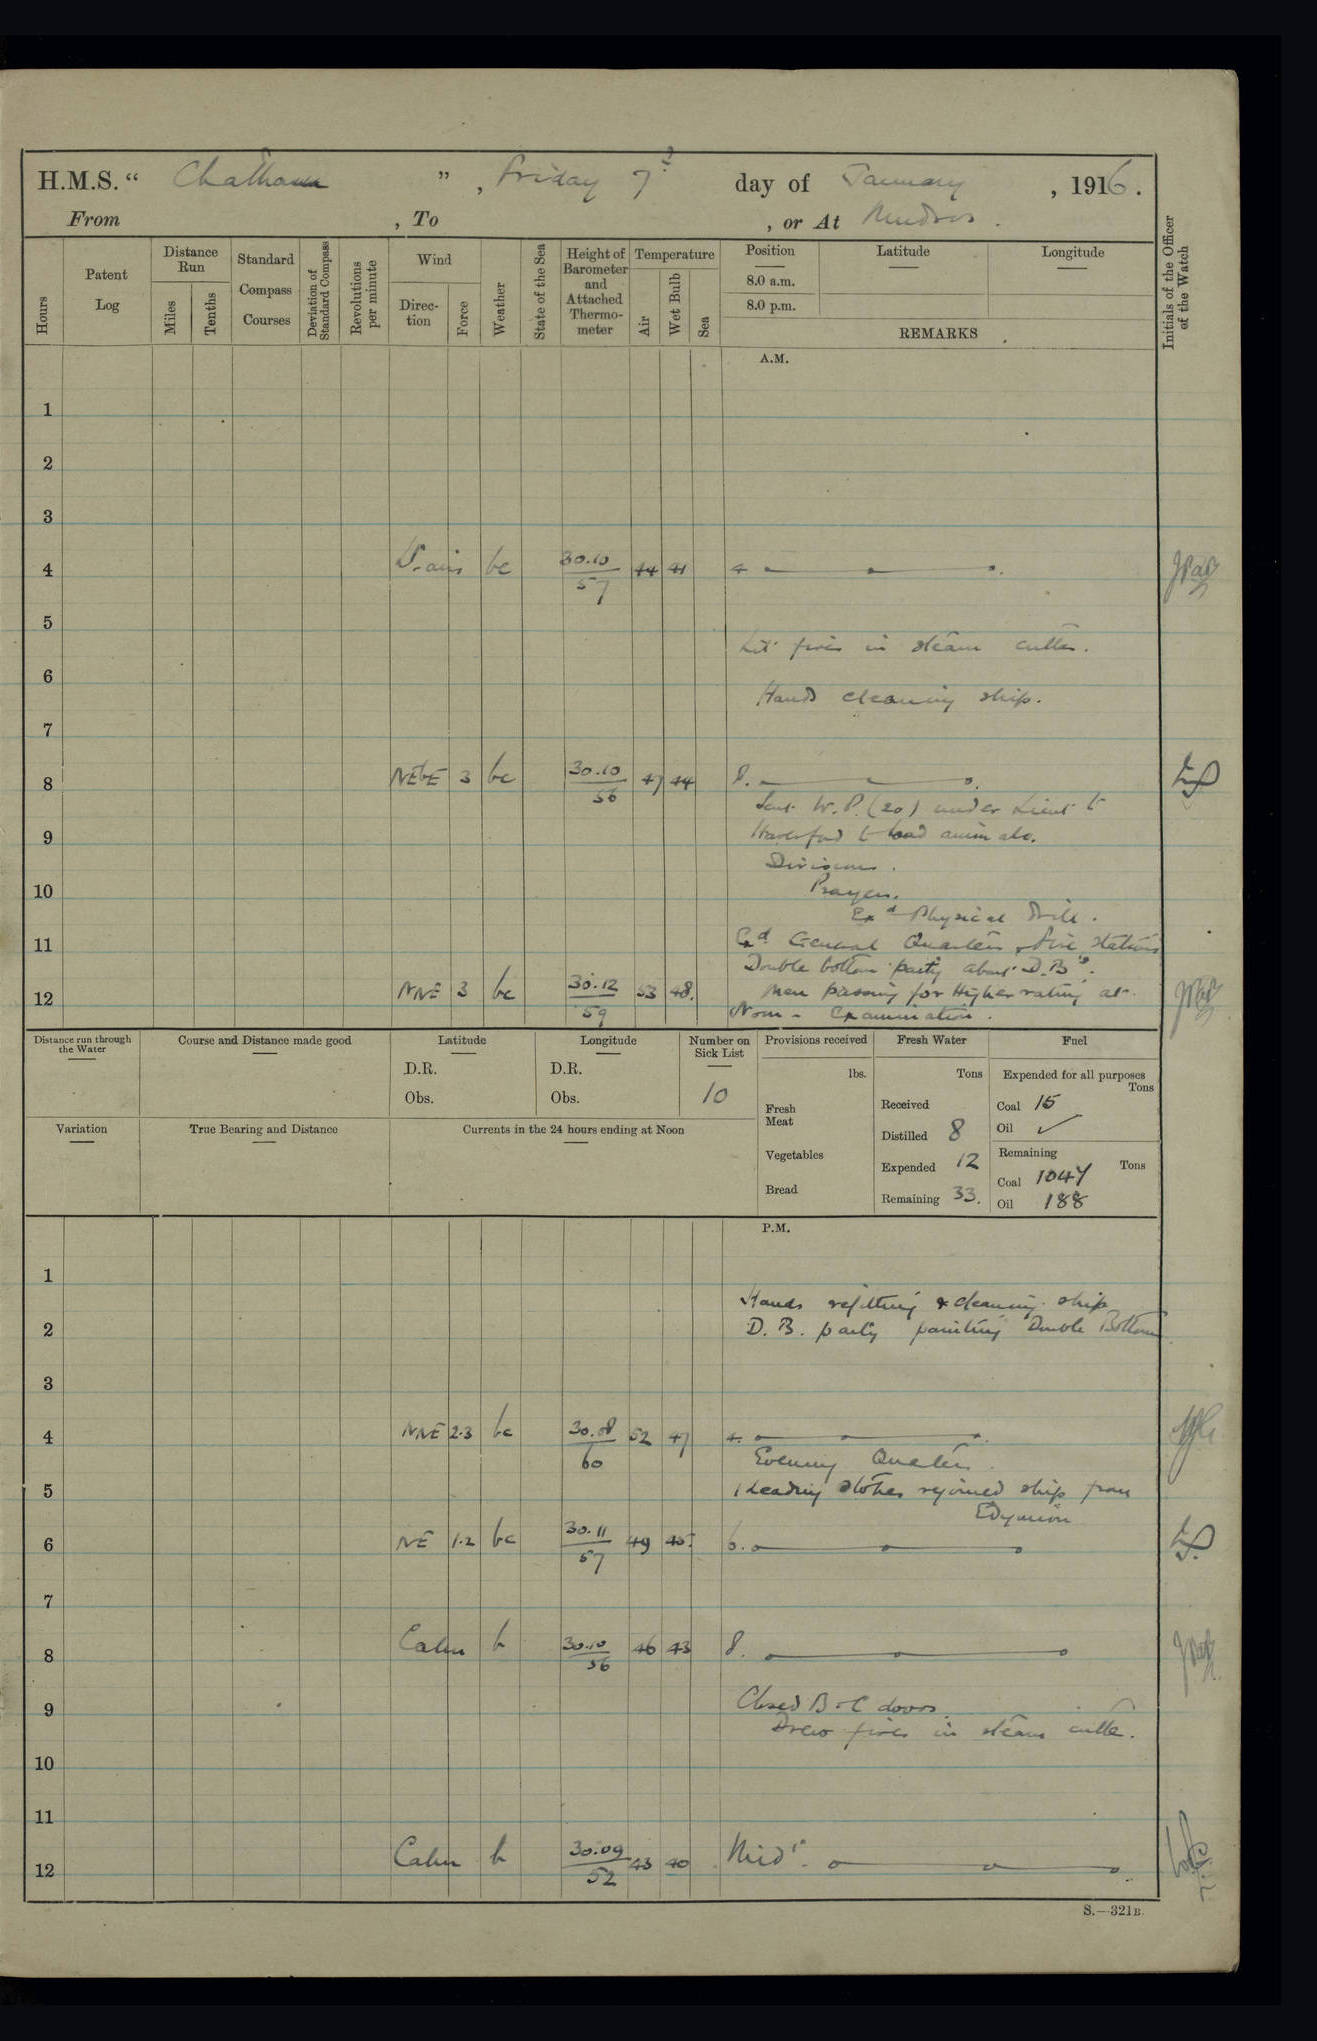 H.M.S. " Chatham ", Friday 7th day of January, 1916.
From , To , or At Mudros.
Hours
Patent Log
Distance Run
Miles
Tenths
Standard Compass Courses
Deviation of Standard Compass
Revolutions per minute
Wind
Direction
Force
Weather
State of the Sea
Height of Barometer and Attached Thermometer
Temperature
Air
Wet Bulb
Sea
Position
8.0 a.m.
8.0 p.m.
Latitude
Longitude
REMARKS
Initials of the Officer of the Watch
A.M.
1
2
3
4 Lt. airs bc 30.10 57 44 41 4
5
Lit fires in steam cutter.
6
Hands cleaning ship.
7
8 NEbE 3 bc 30.10 56 47 44 8.
Sent W.P. (20) under Lieut to
9 Haverford to load animals.
Divisions.
10 Prayers.
Exd Physical Drill.
11 Exd General Quarters & fire stations
Double bottom party about D.Bs.
12 NNE 3 bc 30.12 59 53 48. Men passing for Higher rating at
Noon - Examination.
Distance run through the Water
Course and Distance made good
Latitude
D.R.
Obs.
Longitude
D.R.
Obs.
Number on Sick List
10
Provisions received
lbs.
Fresh Meat
Vegetables
Bread
Fresh Water
Tons
Received
Distilled 8
Expended 12
Remaining 33.
Fuel
Expended for all purposes
Tons
Coal 15
Oil ✓
Remaining
Tons
Coal 1047
Oil 188
Variation
True Bearing and Distance
Currents in the 24 hours ending at Noon
P.M.
1
Hands refitting & cleaning ship
2 D.B. party painting Double Bottoms
3
4 NNE 2.3 bc 30.08 60 52 47 4.
Evening Quarters.
5 1 Leading Stoker rejoined ship from
Edymion
6 NE 1.2 bc 30.11 57 49 45. 6.
7
8 Calm b 30.10 56 46 43 8.
9 Closed B & C doors.
Drew fires in steam cutter.
10
11
12 Calm b 30.09 52 43 40 Midt.
S.—321B.